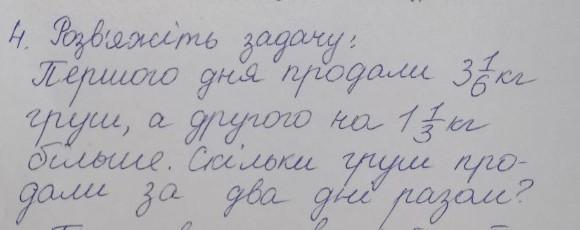 4. Розв'яжіть задачу:
Першого дня продали 3 1/6 кг
груш, а другого на 1 1/3 кг
більше. Скільки груш про-
дали за два дні разом?